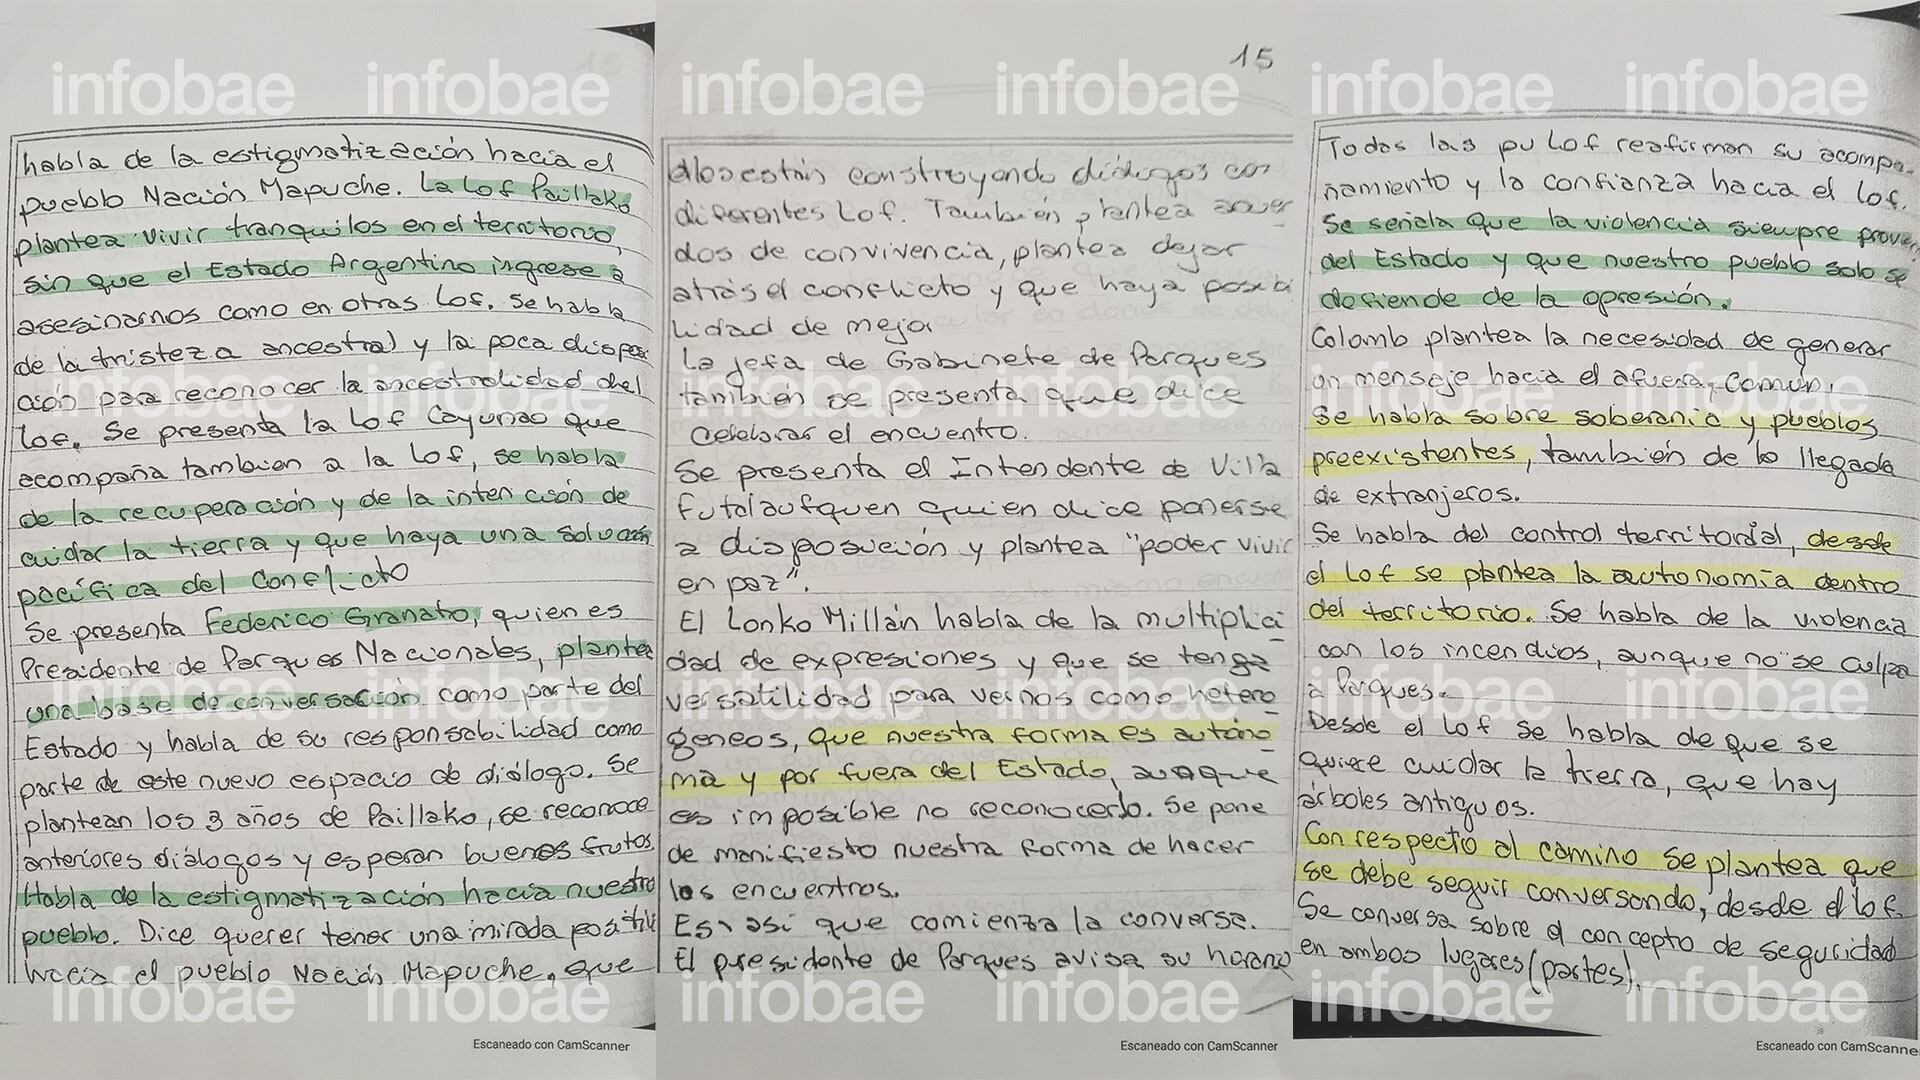 habla de la estigmatización hacia el
pueblo Nación Mapuche. La Lof Paillako
plantea vivir tranquilos en el territorio,
sin que el Estado Argentino ingrese a
asesinarnos como en otras Lof. Se habla
de la tristeza ancestral y la poca dispos
ción para reconocer la ancestralidad del
Lof. Se presenta la Lof Cayunao que
acompaña tambien a la Lof, se habla
de la recuperación y de la intención de
cuidar la tierra y que haya una solución
pacífica del Conflicto
Se presenta Federico Granato, quien es
Presidente de Parques Nacionales, plantea
una base de conversación como parte del
Estado y habla de su responsabilidad como
parte de este nuevo espacio de diálogo. Se
plantean los 3 años de Paillako, se reconoce
anteriores diálogos y esperan buenos frutos
Habla de la estigmatización hacia nuestro
pueblo. Dice querer tener una mirada positiv
hacia el pueblo Nación Mapuche, que
Escaneado con CamScanner
15
ellos están construyendo diálogos con
diferentes Lof. También plantea acuer
dos de convivencia, plantea dejar
atrás el conflicto y que haya posibi
lidad de mejor
La jefa de Gabinete de Parques
también se presenta que dice
celebrar el encuentro.
Se presenta el Intendente de Villa
Futalaufquen quien dice ponerse
a disposución y plantea "poder vivir
en paz".
El Lonko Millán habla de la multiplici
dad de expresiones y que se tenga
versatilidad para vernos como hetero
geneos, que nuestra forma es autóno
ma y por fuera del Estado, aunque
es imposible no reconocerlo. Se pone
de manifiesto nuestra forma de hacer
los encuentros.
Es así que comienza la conversa.
El presidente de Parques avisa su horario
Escaneado con CamScanner
Todas las pu Lof reafirman su acompa-
ñamiento y la confianza hacia el Lof.
Se señala que la violencia siempre provie
del Estado y que nuestro pueblo solo se
defiende de la opresión.
Colomb plantea la necesidad de generar
un mensaje hacia el afuera, común.
Se habla sobre soberania y pueblos
preexistentes, también de la llegada
de extranjeros.
Se habla del control territorial, desde
el Lof se plantea la autonomía dentro
del territorio. Se habla de la violencia
con los incendios, aunque no se culpa
a Parques.
Desde el Lof se habla de que se
quiere cuidar la tierra, que hay
árboles antiguos.
Con respecto al camino se plantea que
se debe seguir conversando, desde el Lof.
Se conversa sobre el concepto de seguridad
en ambos lugares (partes).
Escaneado con CamScanner
infobae infobae infobae infobae infobae infobae
infobae infobae infobae infobae infobae infobae
infobae infobae infobae infobae infobae infobae
infobae infobae infobae infobae infobae infobae